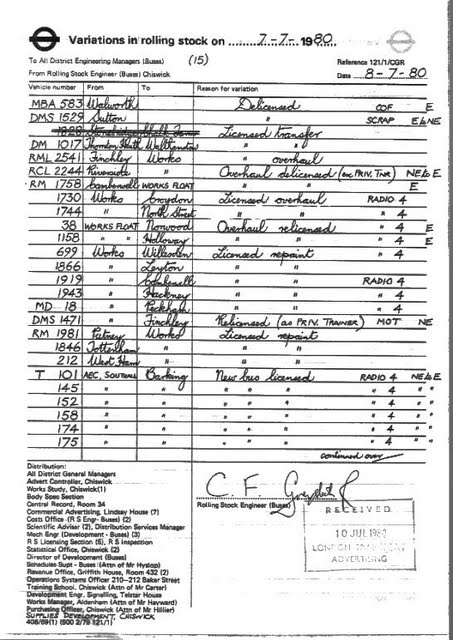 Variations in rolling stock on 7-7- 1980
To All District Engineering Managers (Buses) (15) Reference 121/1/CGR
From Rolling Stock Engineer (Buses) Chiswick Date 8-7-80
Vehicle number From To Reason for variation
MBA 583 Walworth Delicensed COF E
DMS 1529 Sutton " SCRAP E & NE
DM 1017 Thornton Heath Walthamstow Licensed transfer
RML 2541 Finchley Works " overhaul
RCL 2244 Riverside " Overhaul delicensed (ex PRIV. TNR) NE & E
RM 1758 Camberwell WORKS FLOAT " " E
1730 Works Croydon Licensed overhaul RADIO 4
1744 " North Street " " " 4
38 WORKS FLOAT Norwood Overhaul relicensed " 4 E
1158 " " Holloway " " " 4 E
699 Works Willesden Licensed repaint " 4
1866 " Leyton " "
1919 " Camberwell " " RADIO 4
1943 " Hackney " " " 4
MD 18 " Peckham " " " 4
DMS 1471 " Finchley Relicensed (as PRIV. TRAINER) MOT NE
RM 1981 Putney Works Licensed repaint
1846 Tottenham " " "
212 West Ham " " "
T 101 AEC, SOUTHALL Barking New bus licensed RADIO 4 NE & E
145 " " " " " " 4 " "
152 " " " " " " 4 " "
158 " " " " " " 4 " "
174 " " " " " " 4 " "
175 " " " " " " 4 " "
continued over
Distribution:
All District General Managers
Advert Controller, Chiswick
Works Study, Chiswick(1)
Body Spes Section
Central Record, Room 34
Commercial Advertising, Lindsay House (7)
Costs Office (R S Engr- Buses) (2)
Scientific Adviser (2), Distribution Services Manager
Mech Engr (Development - Buses) (3)
R S Licensing Section (5), R S Inspection
Statistical Office, Chiswick (2)
Director of Development (Buses)
Schedules Supt - Buses (Attn of Mr Hyslop)
Revenue Office, Griffith House, Room 432 (2)
Operations Systems Officer 210-212 Baker Street
Training School, Chiswick (Attn of Mr Carter)
Development Engr, Signalling, Telstar House
Works Manager, Aldenham (Attn of Mr Hayward)
Purchasing Officer, Chiswick (Attn of Mr Hillier)
SUPPLIES DEVELOPMENT, CHISWICK
408/69(1) (500 2/79 121/1)
C. F.
Rolling Stock Engineer (Buses)
RECEIVED
10 JUL 1980
LONDON TRANSPORT
ADVERTISING